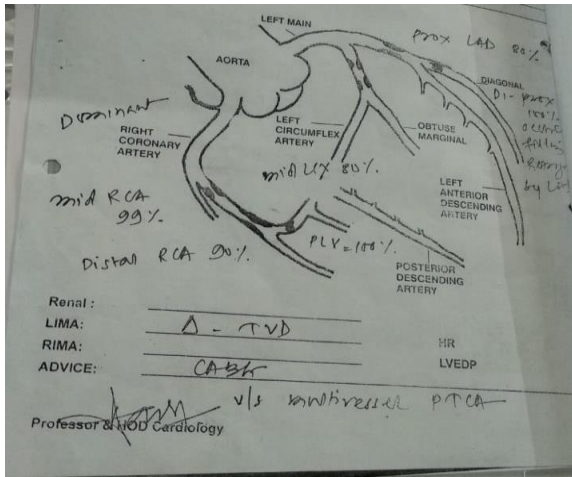 LEFT MAIN
Prox LAD 80%
AORTA
DIAGONAL
D1 - prox
100%
Dominant
RIGHT
CORONARY
ARTERY
LEFT
CIRCUMFLEX
ARTERY
OBTUSE
MARGINAL
mid LCX 80%
LEFT
ANTERIOR
DESCENDING
ARTERY
mid RCA
99%
Distal RCA 90%
PLV = 100%
POSTERIOR
DESCENDING
ARTERY
Renal :
LIMA: Δ - TVD
RIMA:
HR
ADVICE: CABG
LVEDP
v/s multivessel PTCA
Professor & HOD Cardiology